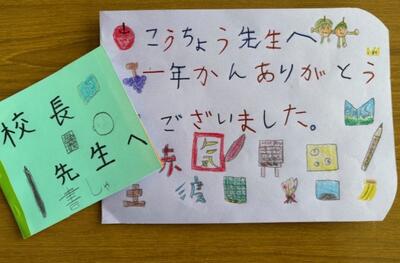 こうちょう先生へ
一年かんありがとう
ございました。
赤 気
土 渡
校長
先生へ
書しゃ